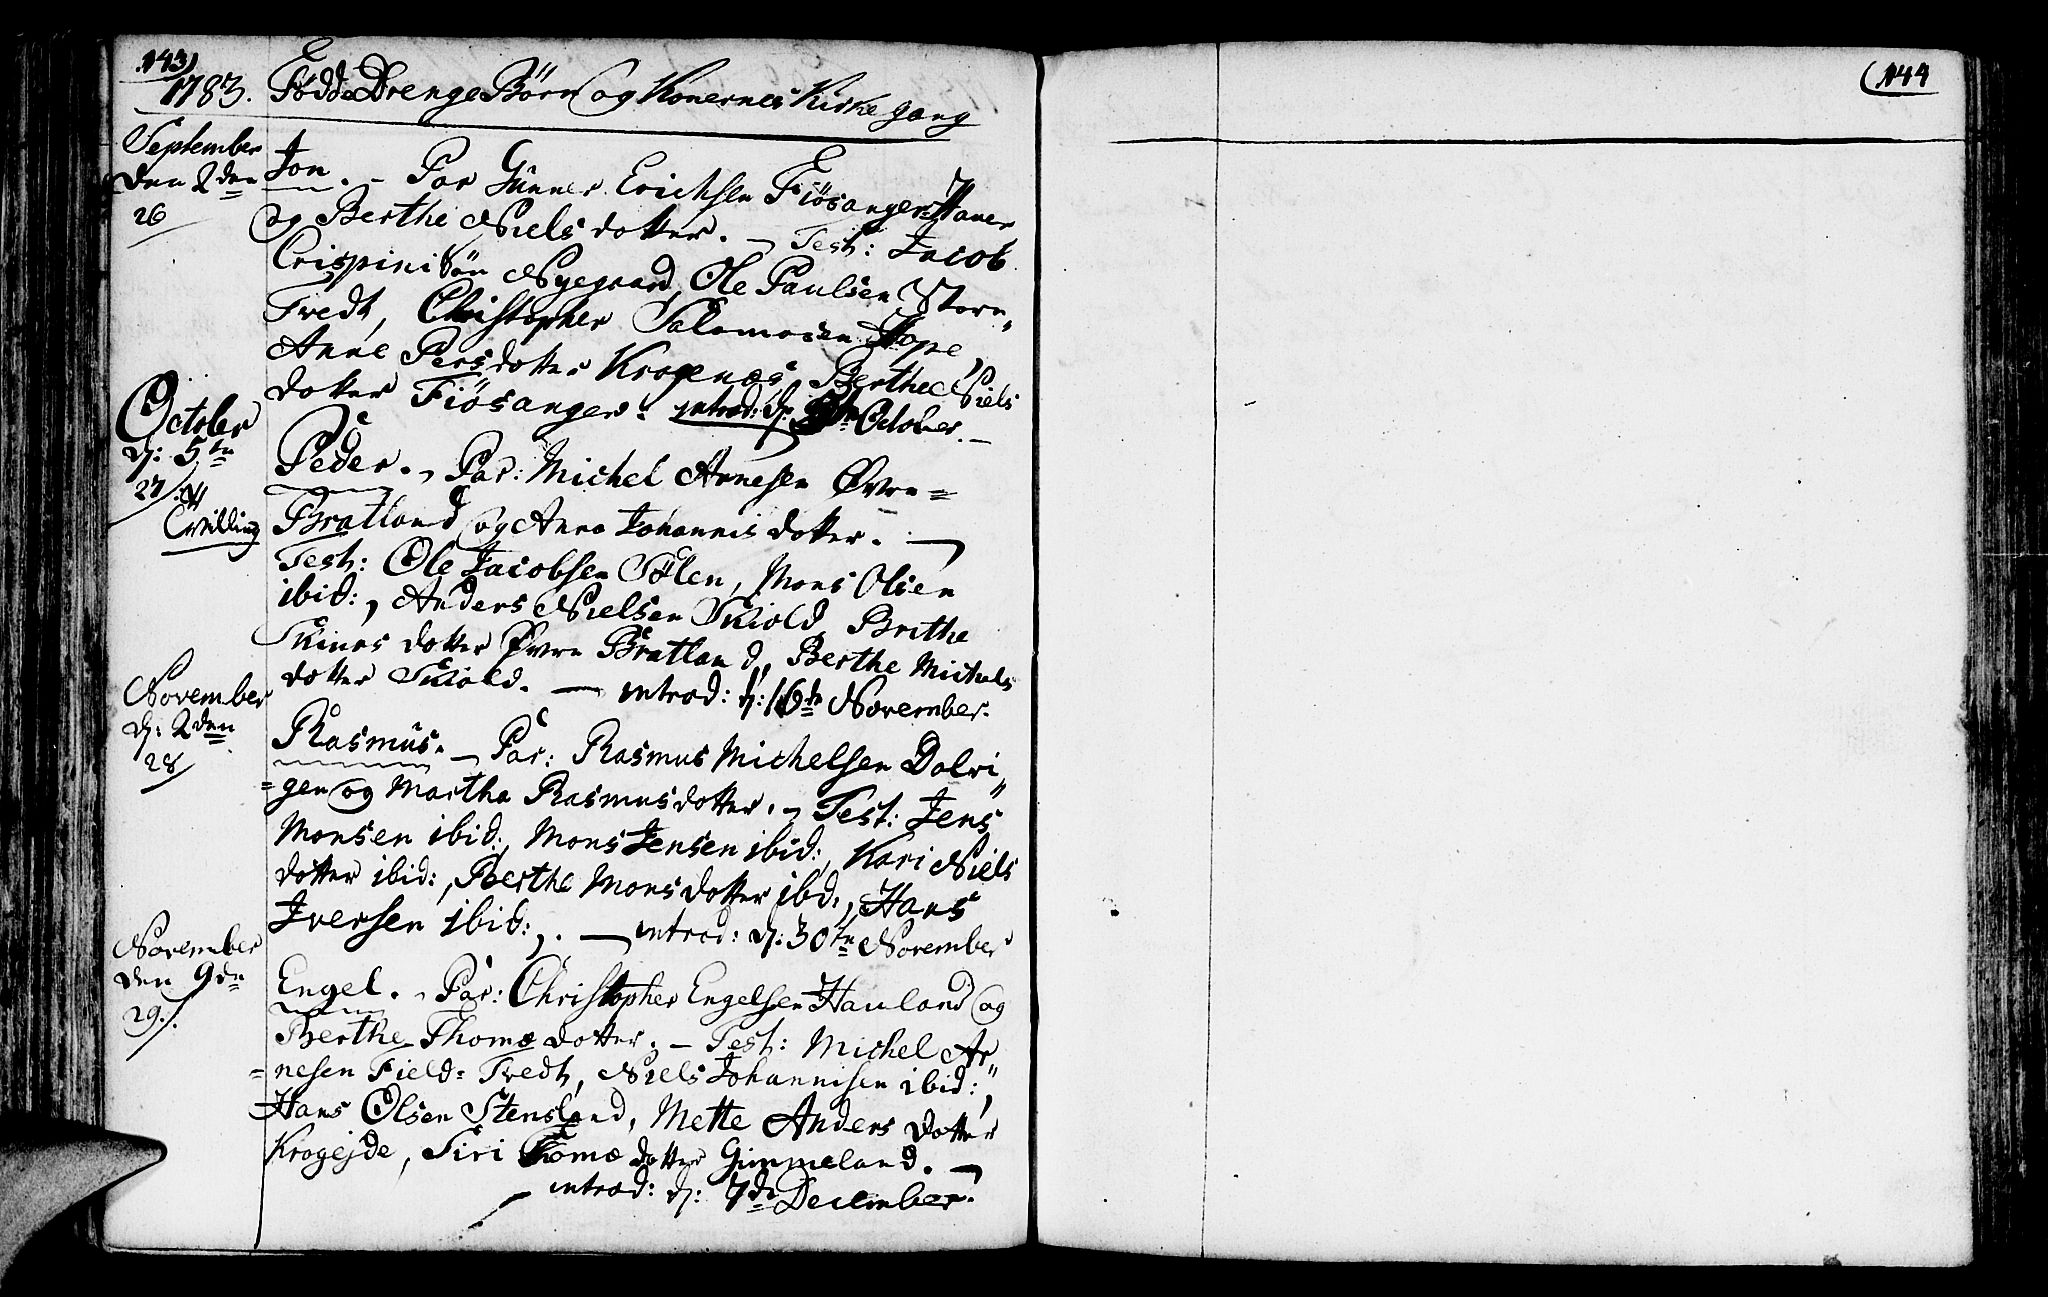 143)
1783. Födde Drenge Börn og Konernes Kirke gang
September
den 2den
26
Jon. - Par Gunner Erichsen Fiösanger
og Berthe Niels dotter. - Test: Jacob
Crispini Sön Nygaard, Ole Paulsen Store-
Tvedt, Christopher Salamonsen Hope,
Anne Pers dotter Kragenæs, Berthe Niels
dotter Fiösanger. introd: d: October. -
October
d: 5te
27
Tvilling
Peder. - Par: Michel Arnesen Øvre=
Bratland og Anna Johannis dotter. -
Test: Ole Jacobsen Sælen, Mons Olsen
ibid:, Anders Nielsen Skiold, Brithe
dotter Øvre Bratland, Berthe Michels
dotter Skiold. - introd: d: 16de November.
November
d: 2den
28
Rasmus. - Par: Rasmus Michelsen Dolvi
=gen og Martha Rasmus dotter. - Test: Jens
Monsen ibid:, Mons Jensen ibid:, Kari Niels
dotter ibid:, Berthe Mons dotter ibd:, Hans
Iversen ibid:,. - introd: d: 30te November
November
den 9de
29
Engel. - Par: Christopher Engelsen Hauland og
Berthe Thomæ dotter. - Test: Michel Ar
=nesen Field=Tvedt, Niels Johannisen ibid:,
Hans Olsen Stensland, Mette Anders dotter
Krogejde, Siri Tomæ dotter Gimmeland. -
- introd: d: 7de December.
(144